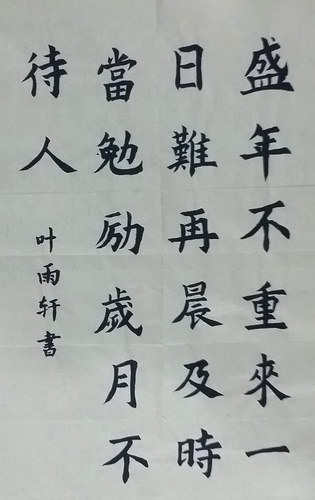 盛年不重來一
日難再晨及時
當勉励歲月不
待人
叶雨轩書